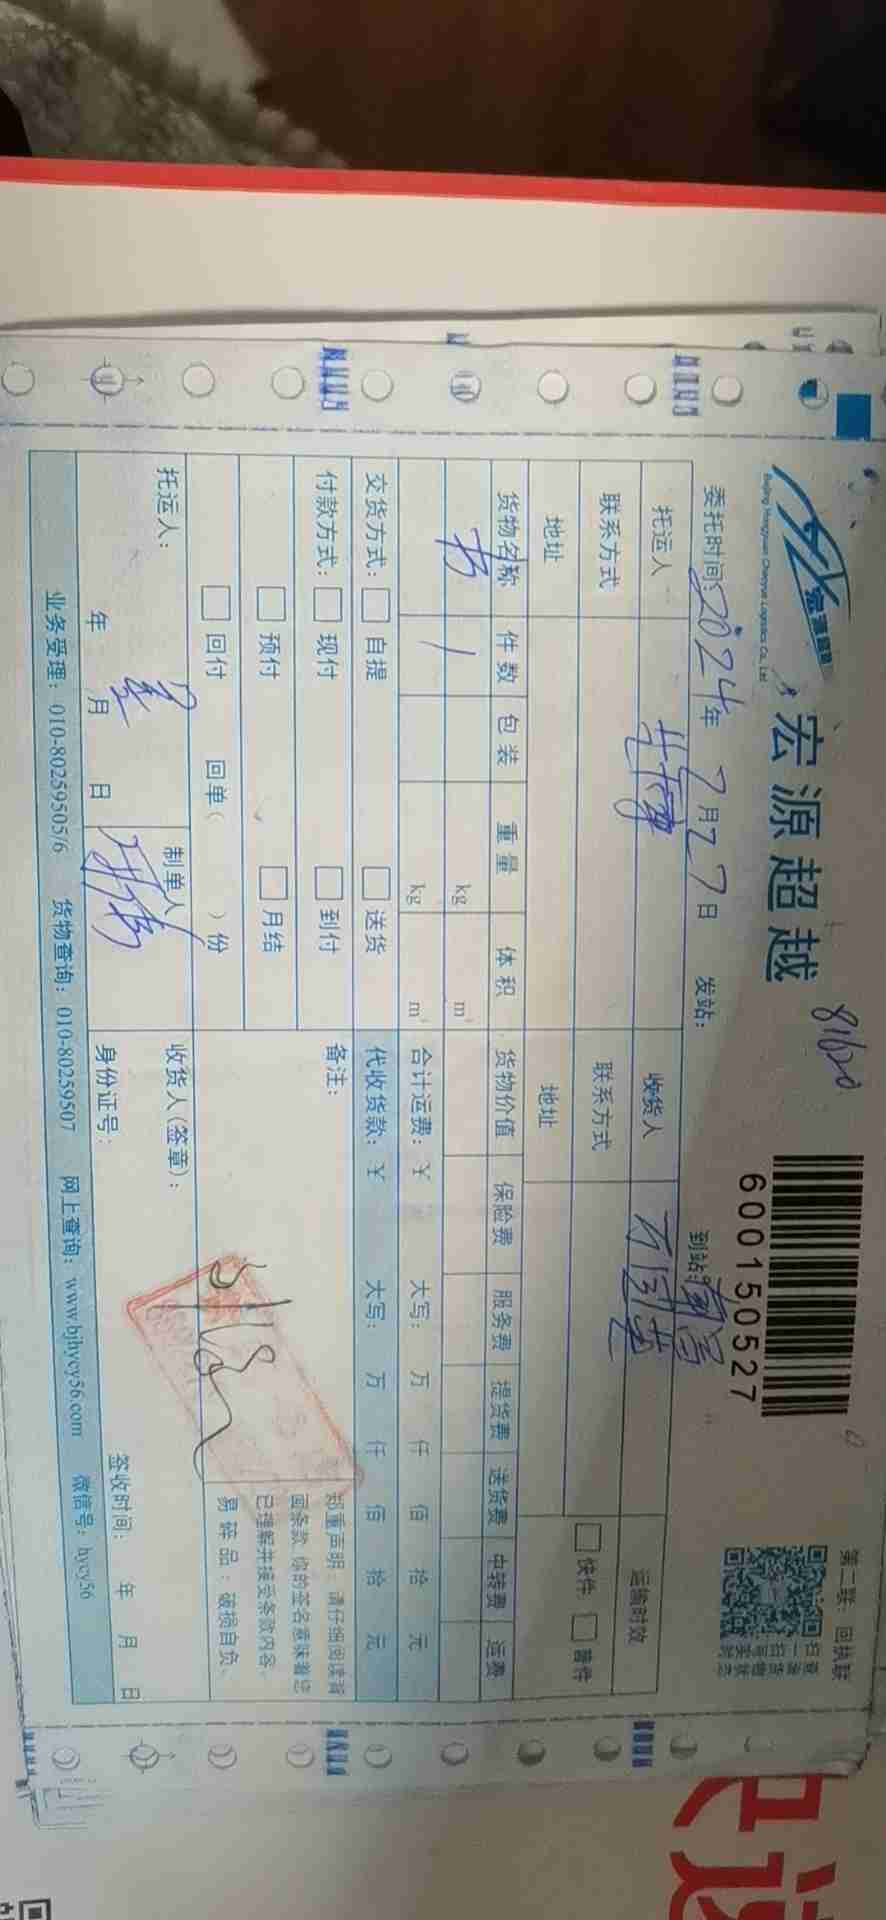 宏源超越
Beijing Hongyuan Chaoyue Logistics Co., Ltd
81620
600150527
第二联：回执联
委托时间：2024年7月27日 发站： 到站：
托运人 收货人 运输时效
联系方式 联系方式 快件 普件
地址 地址
货物名称 件数 包装 重量 体积 货物价值 保险费 服务费 提货费 送货费 中转费 运费
书 1 kg m³
kg m³ 合计运费：￥ 大写： 万 仟 佰 拾 元
交货方式： 自提 送货 代收货款：￥ 大写： 万 仟 佰 拾 元
付款方式： 现付 到付 备注：
预付 月结
回付 回单（ ）份
郑重声明：请仔细阅读背
面条款 你的签名意味着您
已理解并接受条款内容。
易碎品：破损自负。
托运人： 制单人 收货人(签章)：
年 月 日 身份证号： 签收时间： 年 月 日
业务受理：010-80259505/6 货物查询：010-80259507 网上查询：www.bjhycy56.com 微信号：hycy56